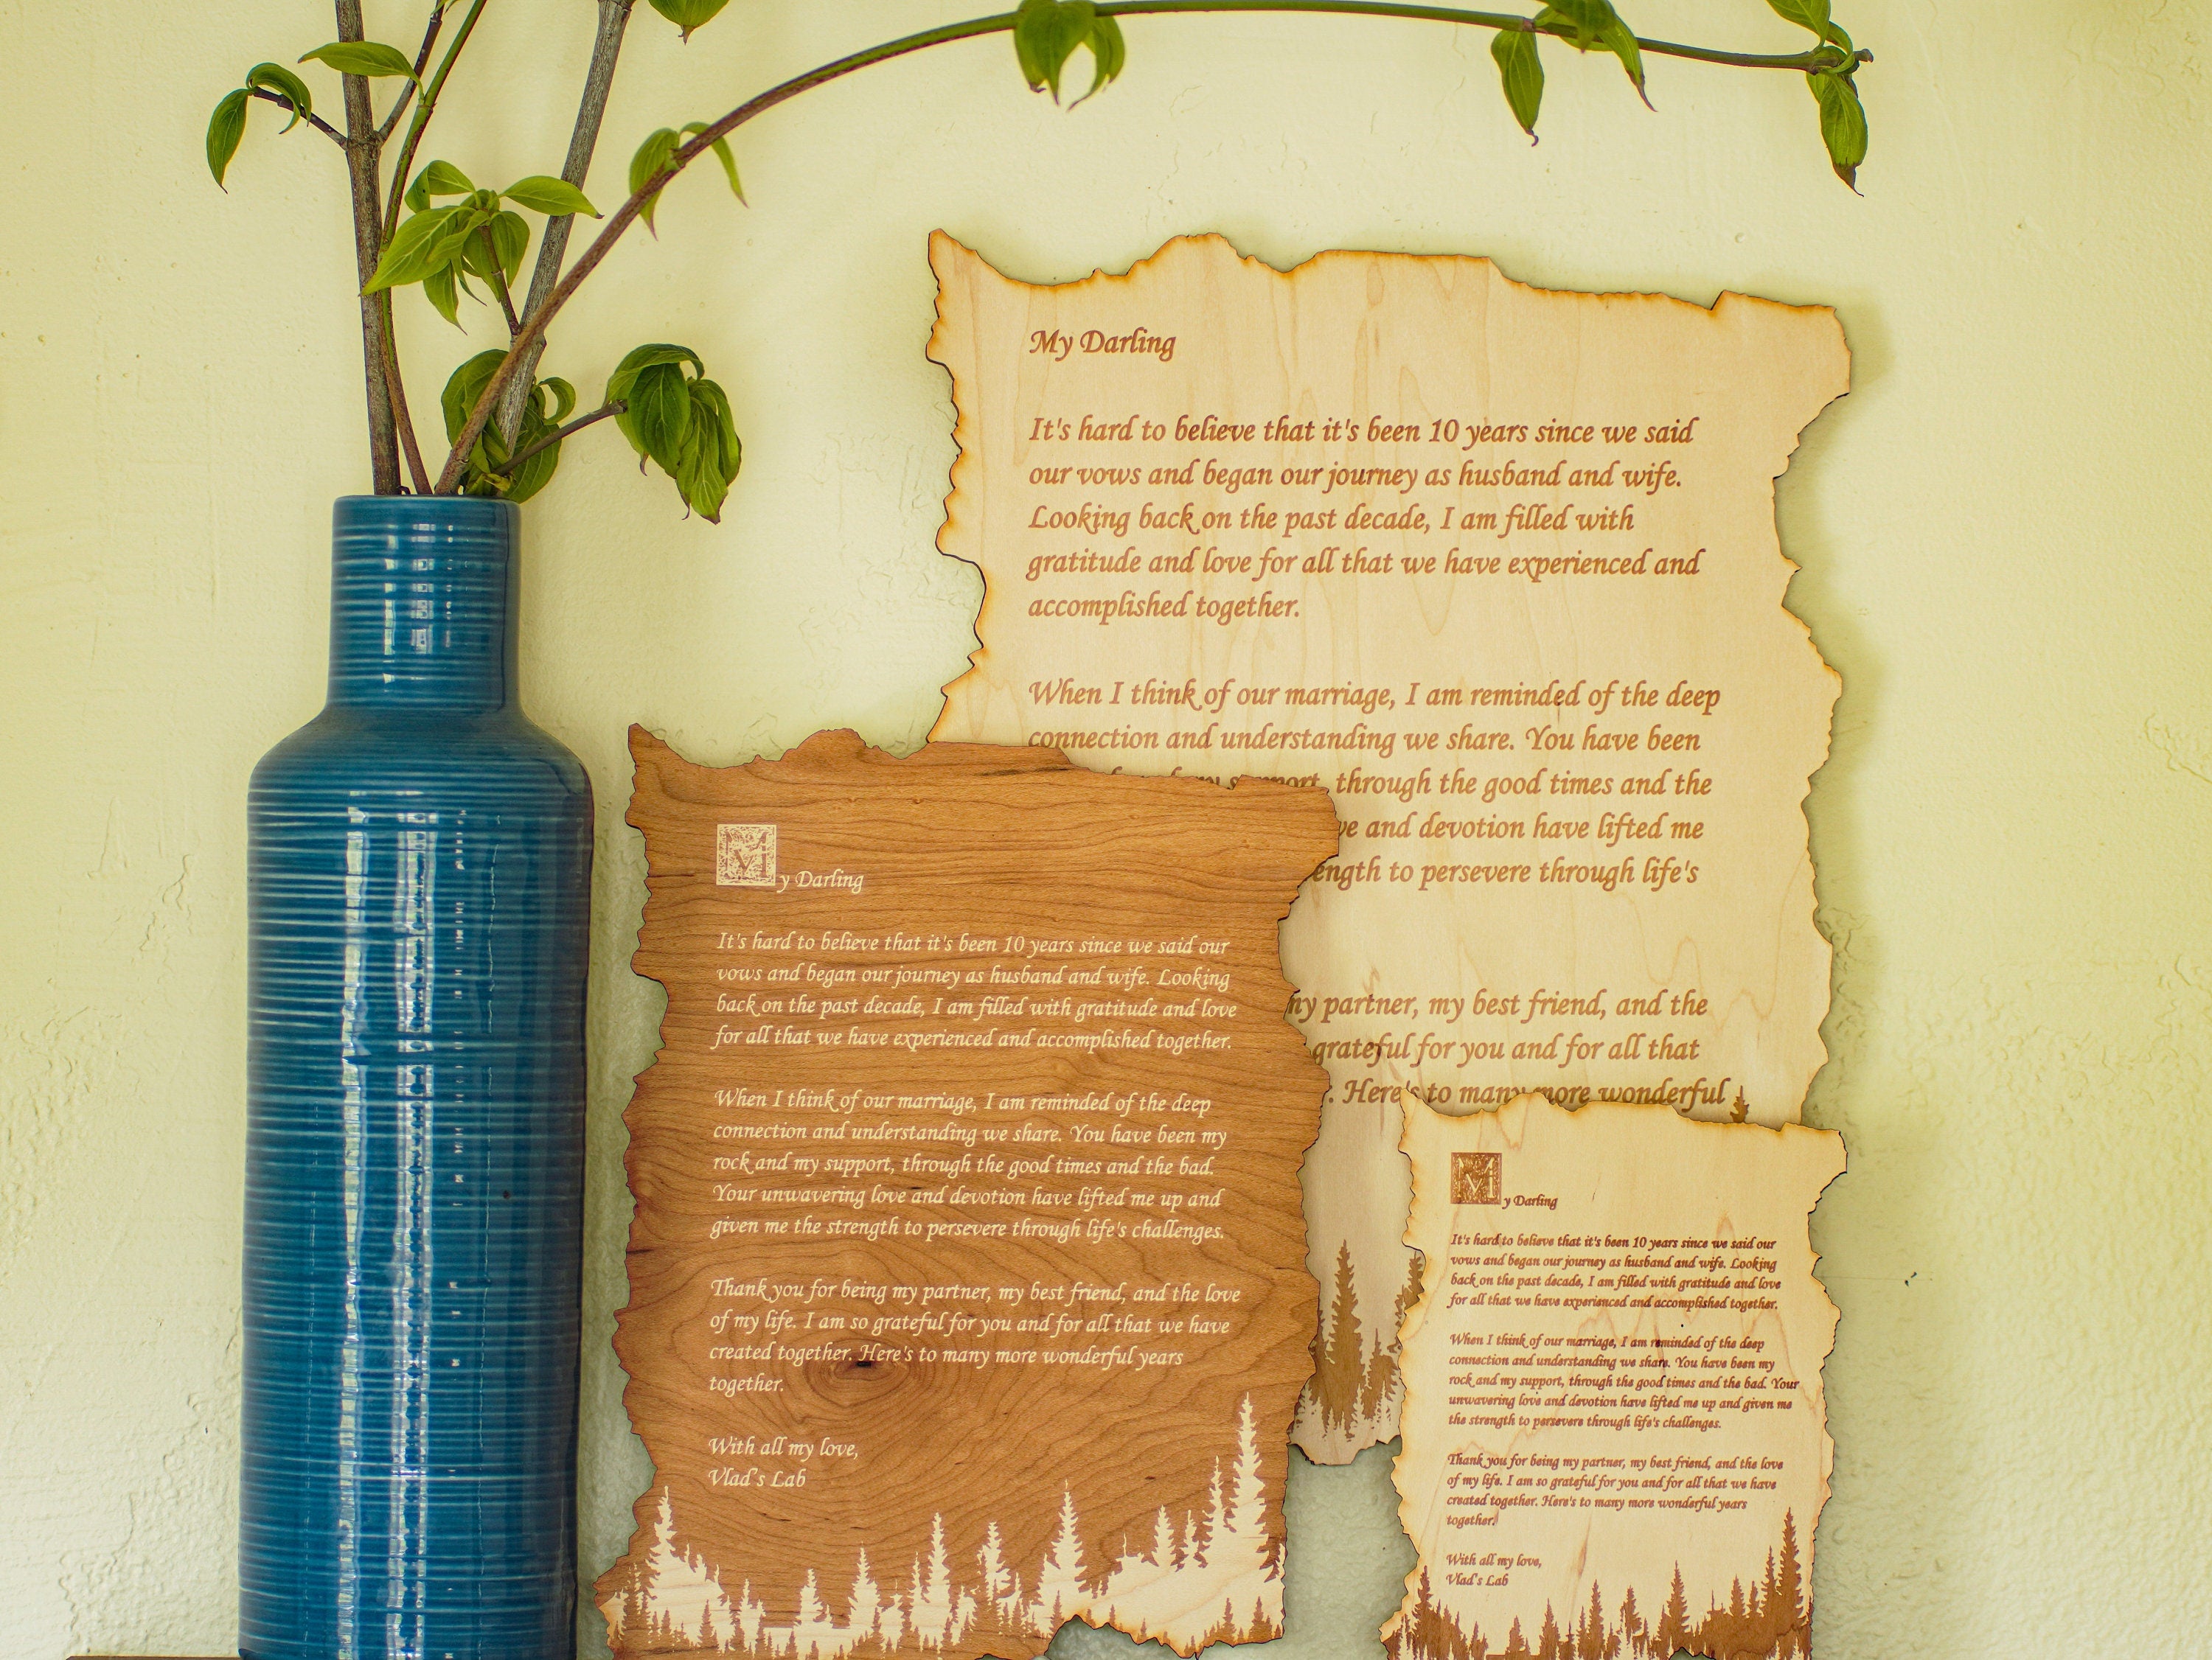 My Darling
It's hard to believe that it's been 10 years since we said
our vows and began our journey as husband and wife.
Looking back on the past decade, I am filled with
gratitude and love for all that we have experienced and
accomplished together.
When I think of our marriage, I am reminded of the deep
connection and understanding we share. You have been
support, through the good times and the
and devotion have lifted me
to persevere through life's
my partner, my best friend, and the
grateful for you and for all that
Here's to many more wonderful
My Darling
It's hard to believe that it's been 10 years since we said our
vows and began our journey as husband and wife. Looking
back on the past decade, I am filled with gratitude and love
for all that we have experienced and accomplished together.
When I think of our marriage, I am reminded of the deep
connection and understanding we share. You have been my
rock and my support, through the good times and the bad.
Your unwavering love and devotion have lifted me up and
given me the strength to persevere through life's challenges.
Thank you for being my partner, my best friend, and the love
of my life. I am so grateful for you and for all that we have
created together. Here's to many more wonderful years
together.
With all my love,
Vlad's Lab
My Darling
It's hard to believe that it's been 10 years since we said our
vows and began our journey as husband and wife. Looking
back on the past decade, I am filled with gratitude and love
for all that we have experienced and accomplished together.
When I think of our marriage, I am reminded of the deep
connection and understanding we share. You have been my
rock and my support, through the good times and the bad. Your
unwavering love and devotion have lifted me up and given me
the strength to persevere through life's challenges.
Thank you for being my partner, my best friend, and the love
of my life. I am so grateful for you and for all that we have
created together. Here's to many more wonderful years
together.
With all my love,
Vlad's Lab